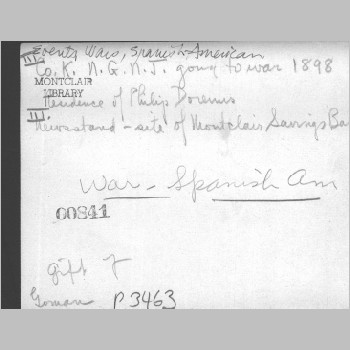 III Events, Wars, Spanish-American
Co. K. N.G.N.J. going to war 1898
MONTCLAIR
LIBRARY
Residence of Philip Doremus
II.
Newsstand - site of Montclair Savings Ba
War - Spanish Am
00841
gift of
Goman P3463